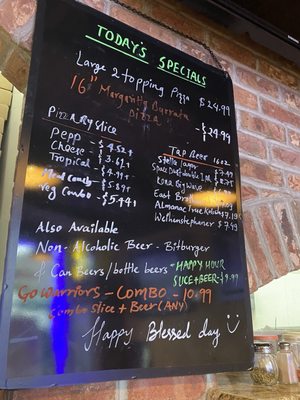 TODAY'S SPECIALS
Large 2 topping Pizza $24.99
16" Margarita Burrata Pizza -$29.99
Pizza By Slice
Pepp - $4.52+
Cheese - $3.61+
Tropical - $4.99+
Meat Combo - $5.89+
Veg Combo - $5.44+
Tap Beer 16oz
Stella
Kona Big Wave
East Broth
Almanac True Kolsch $7.19
Weihenstephaner $7.99
Also Available
Non-Alcoholic Beer - Bitburger
& Can Beers/bottle beers - HAPPY HOUR
SLICE+BEER-$9.99
GO WARRIORS - COMBO - 10.99
Combo Slice + Beer (ANY)
Happy Blessed day